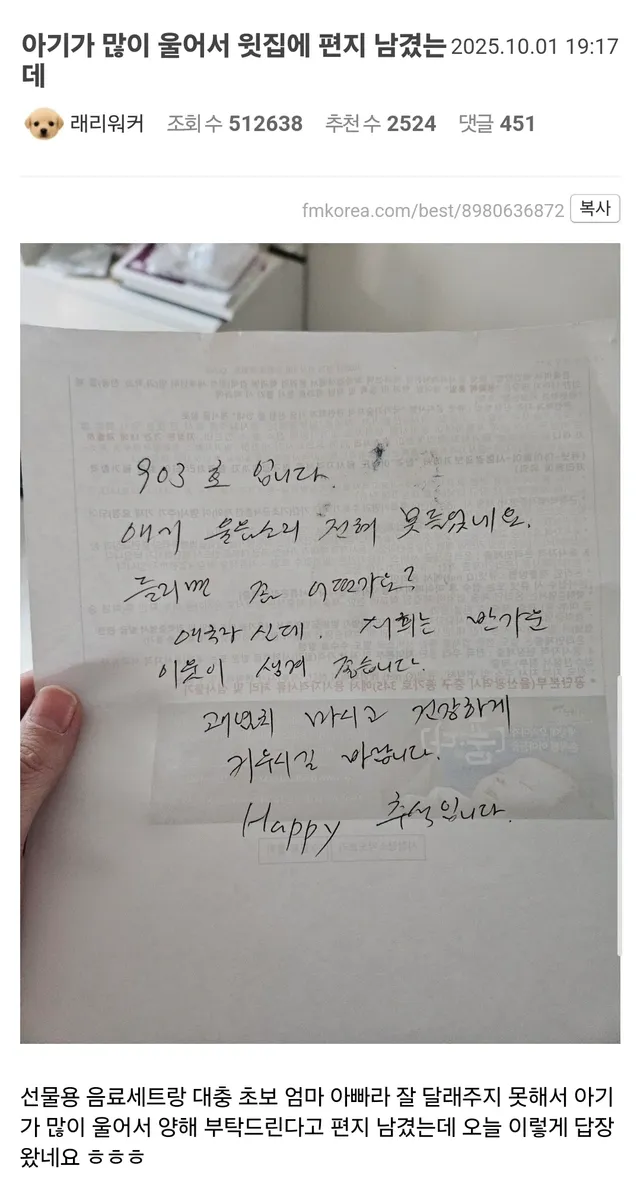 아기가 많이 울어서 윗집에 편지 남겼는데 2025.10.01 19:17
래리워커 조회수 512638 추천수 2524 댓글 451
fmkorea.com/best/8980636872 복사
903호 입니다.
애기 울음소리 전혀 못들었네요.
들리면 좀 어떤가요?
애국자 신데. 저희는 반가운
이웃이 생겨 좋습니다.
괘념치 마시고 건강하게
키우시길 바랍니다.
Happy 추석입니다.
선물용 음료세트랑 대충 초보 엄마 아빠라 잘 달래주지 못해서 아기
가 많이 울어서 양해 부탁드린다고 편지 남겼는데 오늘 이렇게 답장
왔네요 ㅎㅎㅎ